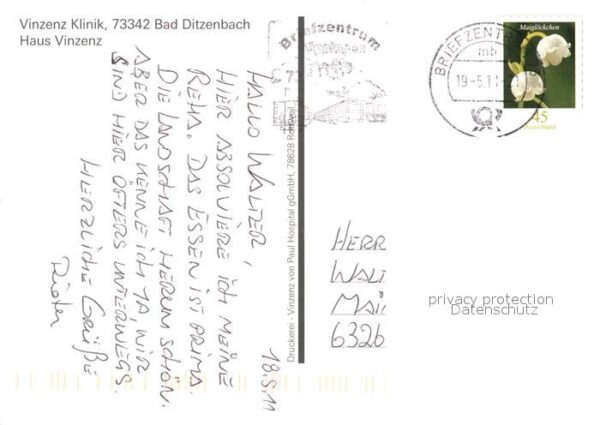 Vinzenz Klinik, 73342 Bad Ditzenbach
Haus Vinzenz
Briefzentrum
73
BRIEFZENT
mb
19-5.11
Maiglöckchen
45
Deutschland
18.5.11
HALLO WALTER,
HIER ABSOLVIERE ICH MEINE
REHA. DAS ESSEN IST PRIMA.
DIE LANDSCHAFT HERUM SCHÖN.
ABER DAS KENNE ICH JA, WIR
SIND HIER ÖFTERS UNTERWEGS.
HERZLICHE GRÜßE
Dieter
Druckerei · Vinzenz von Paul Hospital gGmbH, 78628 Rottweil
HERR
WALT
MAI
6326
privacy protection
Datenschutz